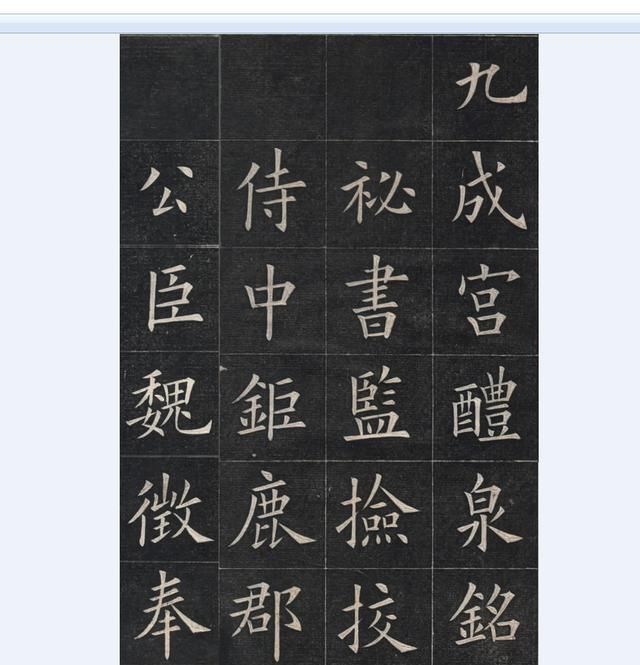 九成宫醴泉銘
祕書監撿挍
侍中鉅鹿郡
公臣魏徵奉